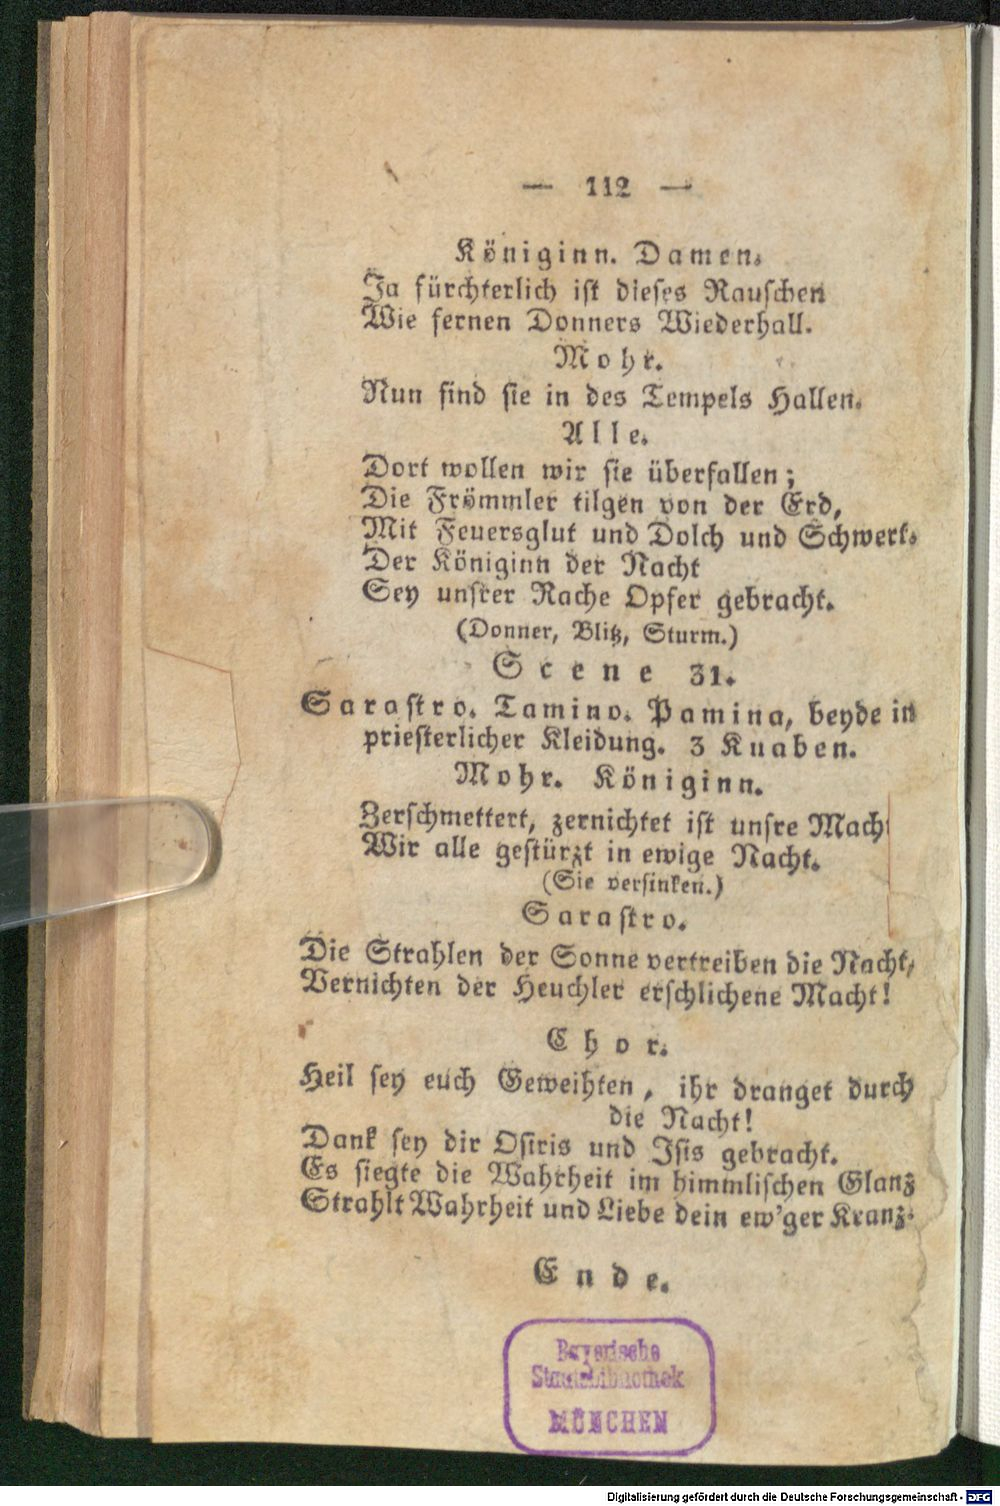 — 112 —
Königinn. Damen.
Ja fürchterlich ist dieses Rauschen
Wie fernen Donners Wiederhall.
Mohr.
Nun sind sie in des Tempels Hallen.
Alle.
Dort wollen wir sie überfallen;
Die Frömmler tilgen von der Erd,
Mit Feuersglut und Dolch und Schwert.
Der Königinn der Nacht
Sey unsrer Rache Opfer gebracht.
(Donner, Blitz, Sturm.)
Scene 31.
Sarastro. Tamino. Pamina, beyde in
priesterlicher Kleidung. 3 Knaben.
Mohr. Königinn.
Zerschmettert, zernichtet ist unsre Mach
Wir alle gestürzt in ewige Nacht.
(Sie versinken.)
Sarastro.
Die Strahlen der Sonne vertreiben die Nacht,
Vernichten der Heuchler erschlichene Macht!
Chor.
Heil sey euch Geweihten, ihr dranget durch
die Nacht!
Dank sey dir Osiris und Isis gebracht.
Es siegte die Wahrheit im himmlischen Glanz
Strahlt Wahrheit und Liebe dein ew'ger Kranz.
Ende.
Bayerische
Staatsbibliothek
MÜNCHEN
Digitalisierung gefördert durch die Deutsche Forschungsgemeinschaft - DFG